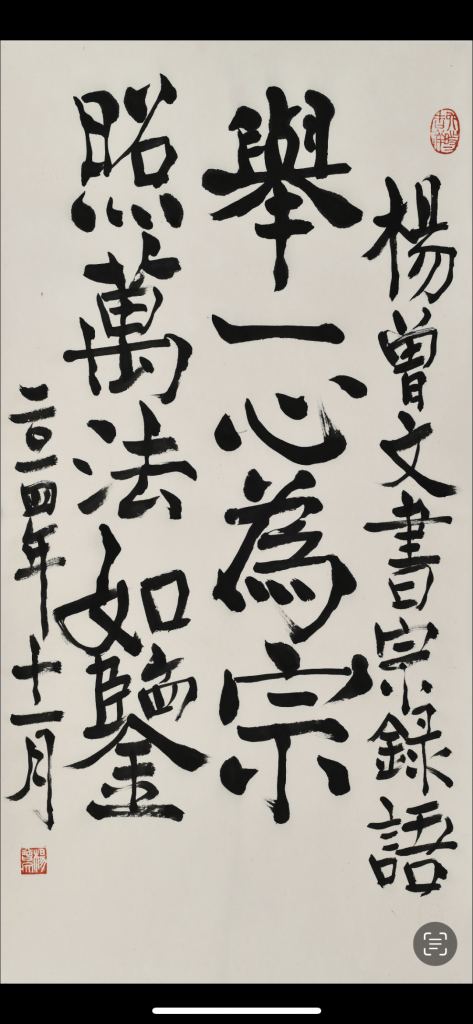 楊曾文書宗錄語
舉一心為宗
照萬法如鑒
二〇一四年十一月